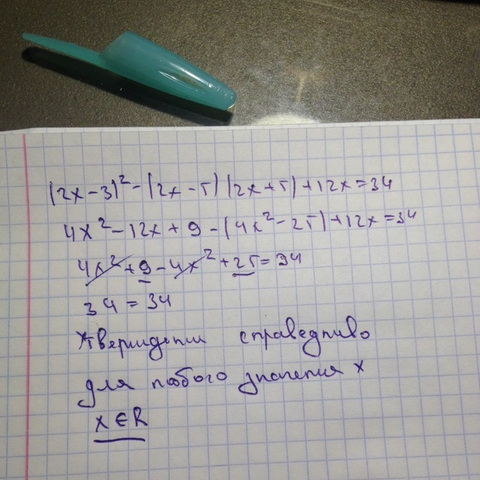 (2x-3)²-(2x-5)(2x+5)+12x=34
4x²-12x+9-(4x²-25)+12x=34
4x²+9-4x²+25=34
34=34
справедливо
для любого значения x
x∈R